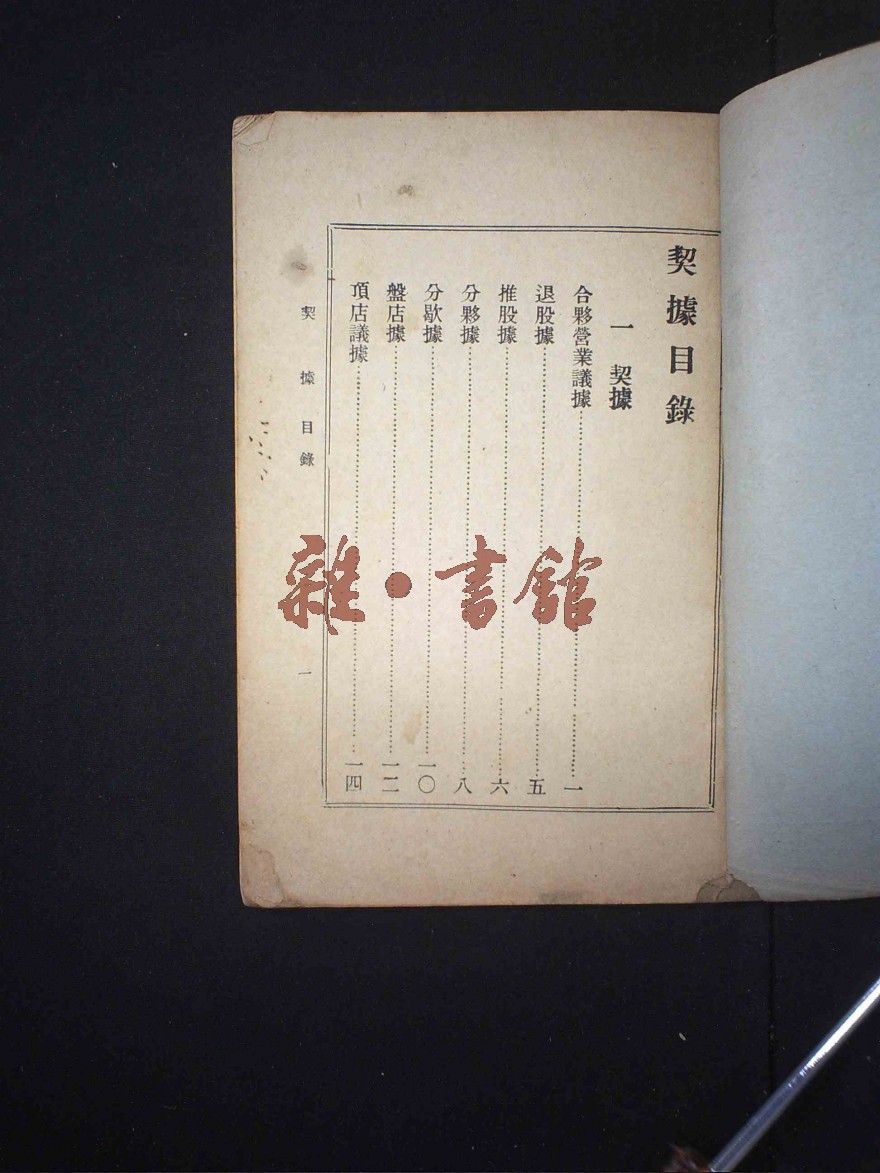 契據目錄
一　契據
合夥營業議據……一
退股據……五
推股據……六
分夥據……八
分歇據……一〇
盤店據……一二
頂店議據……一四
契據目錄　一
雜·書館